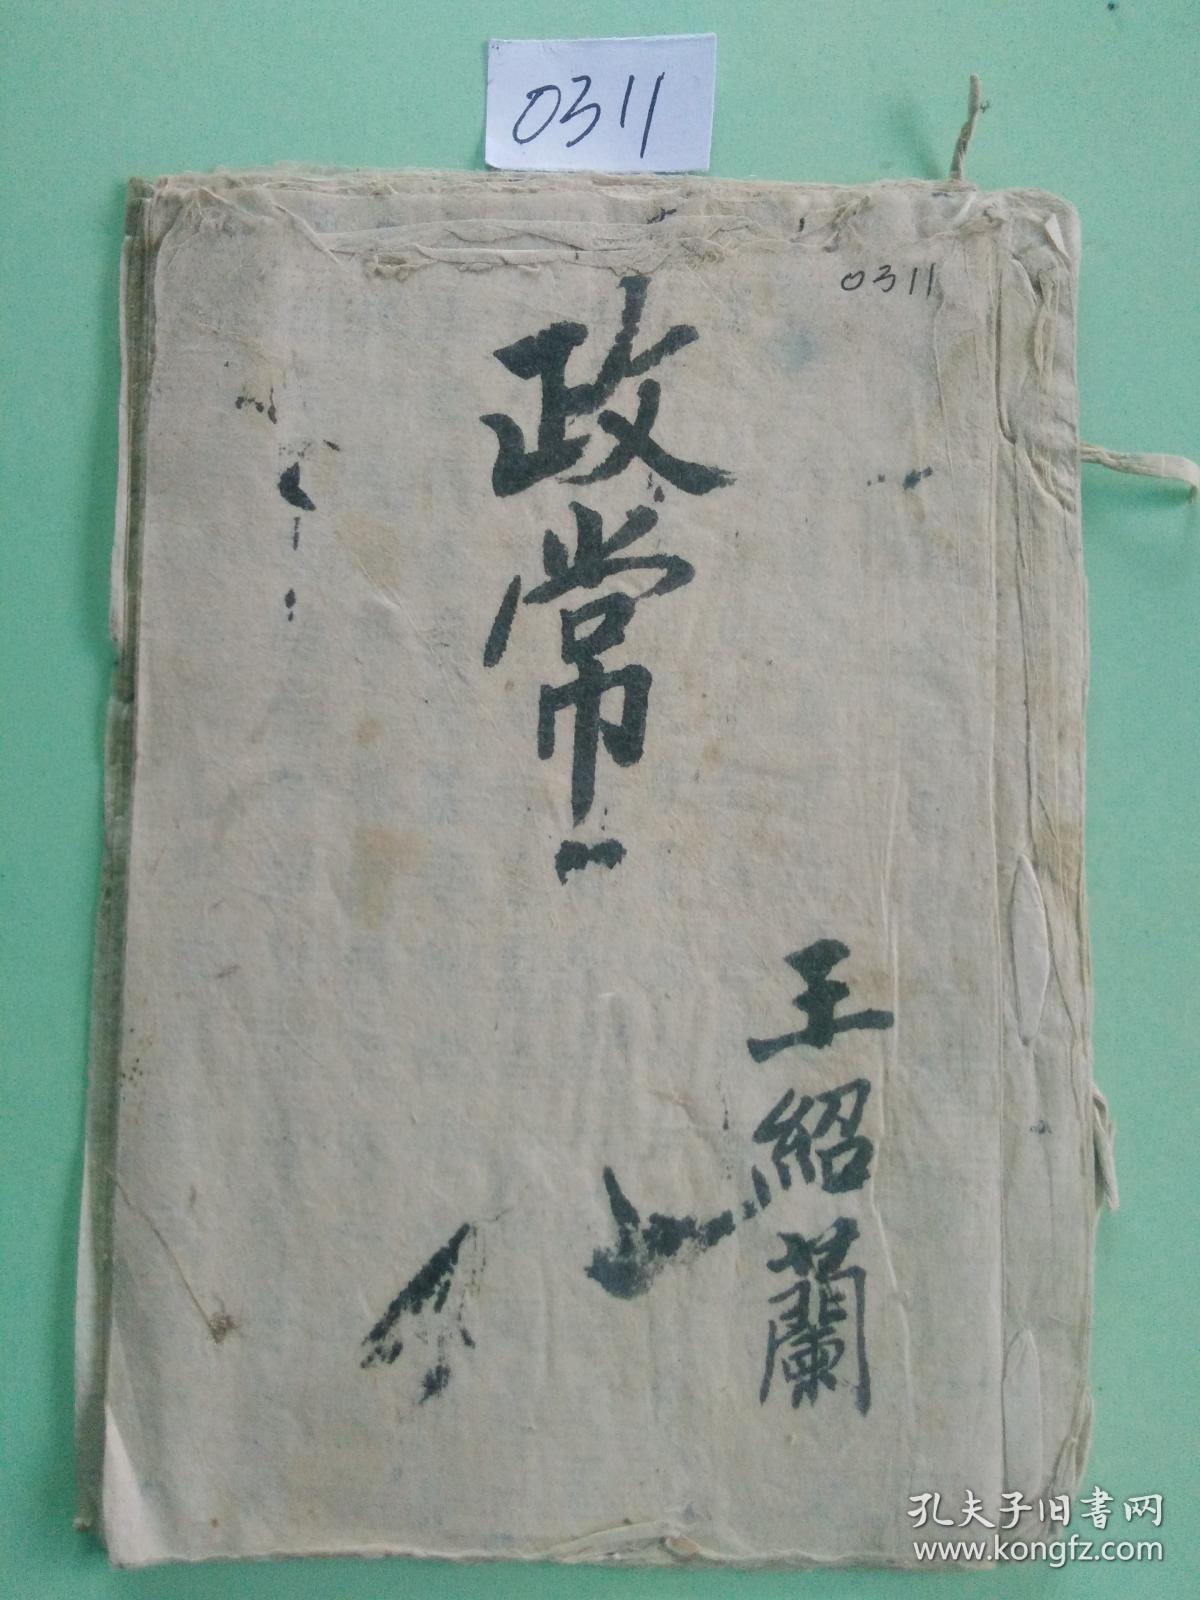 0311
0311
政常一
王紹蘭
孔夫子旧书网
www.kongfz.com